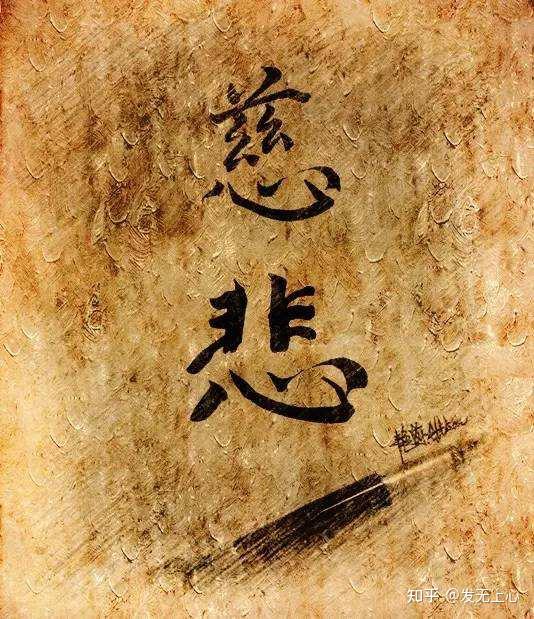 慈
悲
知乎 @发无上心